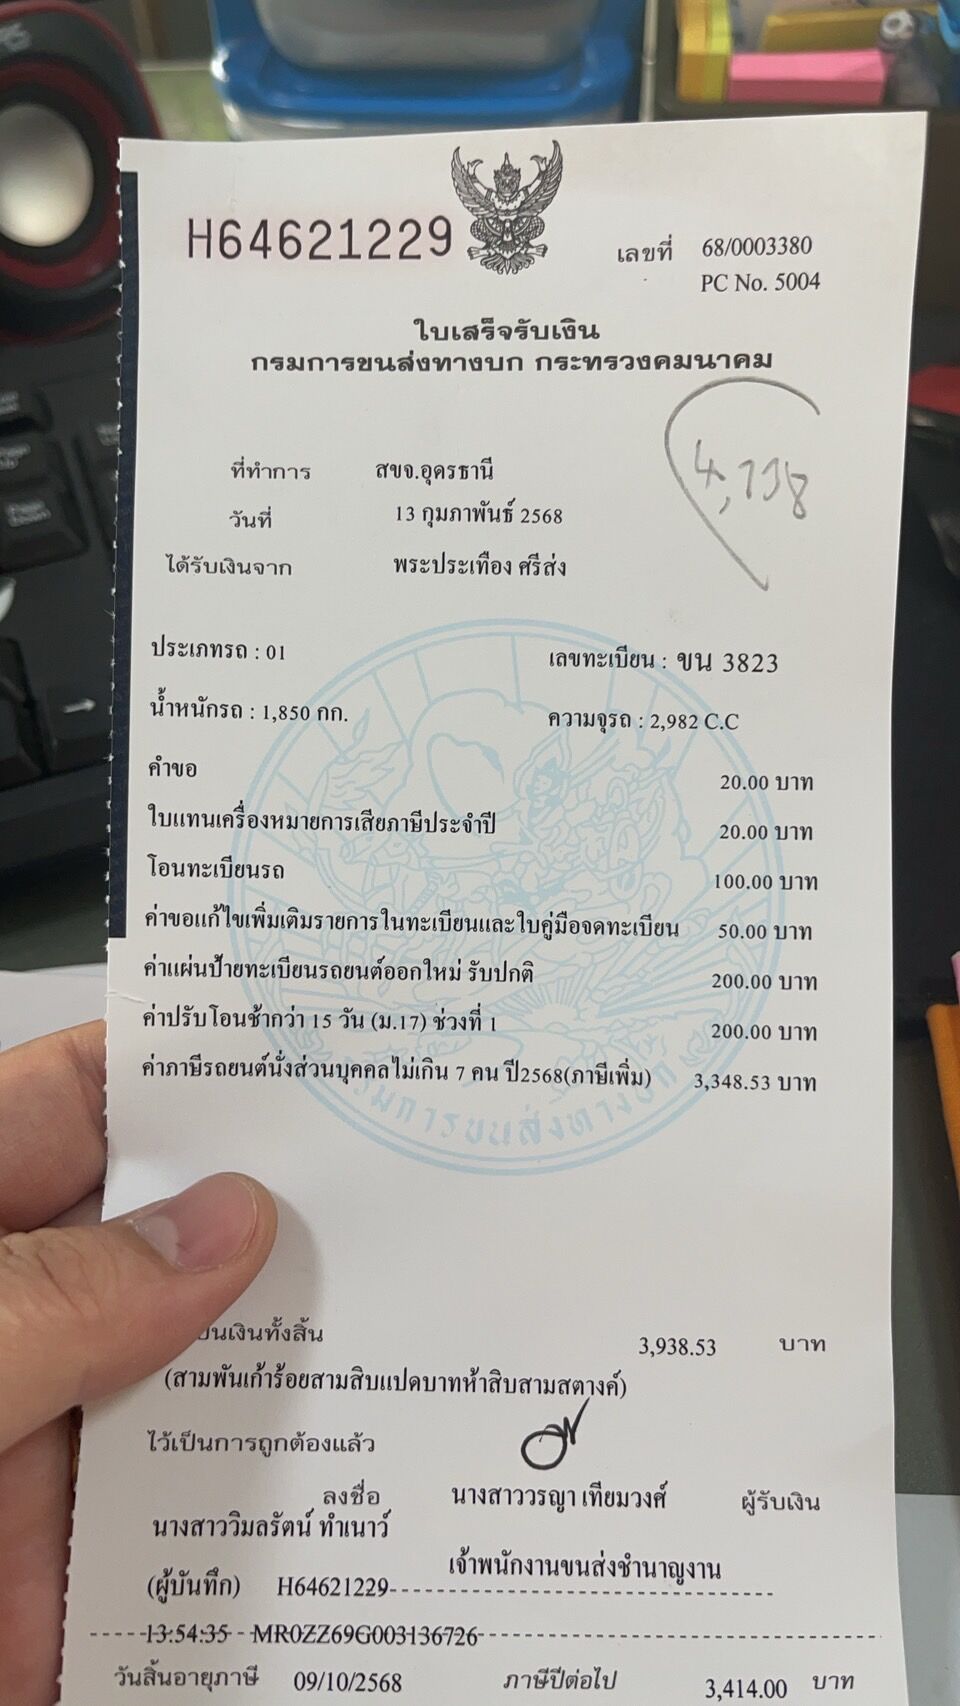 H64621229
เลขที่ 68/0003380
PC No. 5004
ใบเสร็จรับเงิน
กรมการขนส่งทางบก กระทรวงคมนาคม
4,138
ที่ทำการ สขจ.อุดรธานี
วันที่ 13 กุมภาพันธ์ 2568
ได้รับเงินจาก พระประเทือง ศรีส่ง
ประเภทรถ : 01 เลขทะเบียน : ขน 3823
น้ำหนักรถ : 1,850 กก. ความจุรถ : 2,982 C.C
คำขอ 20.00 บาท
ใบแทนเครื่องหมายการเสียภาษีประจำปี 20.00 บาท
โอนทะเบียนรถ 100.00 บาท
ค่าขอแก้ไขเพิ่มเติมรายการในทะเบียนและใบคู่มือจดทะเบียน 50.00 บาท
ค่าแผ่นป้ายทะเบียนรถยนต์ออกใหม่ รับปกติ 200.00 บาท
ค่าปรับโอนช้ากว่า 15 วัน (ม.17) ช่วงที่ 1 200.00 บาท
ค่าภาษีรถยนต์นั่งส่วนบุคคลไม่เกิน 7 คน ปี2568(ภาษีเพิ่ม) 3,348.53 บาท
กรมการขนส่งทางบก
เป็นเงินทั้งสิ้น 3,938.53 บาท
(สามพันเก้าร้อยสามสิบแปดบาทห้าสิบสามสตางค์)
ไว้เป็นการถูกต้องแล้ว
ลงชื่อ นางสาววรญา เทียมวงศ์ ผู้รับเงิน
นางสาววิมลรัตน์ ทำเนาว์
เจ้าพนักงานขนส่งชำนาญงาน
(ผู้บันทึก) H64621229
13:54:35 MR0ZZ69G003136726
วันสิ้นอายุภาษี 09/10/2568 ภาษีปีต่อไป 3,414.00 บาท